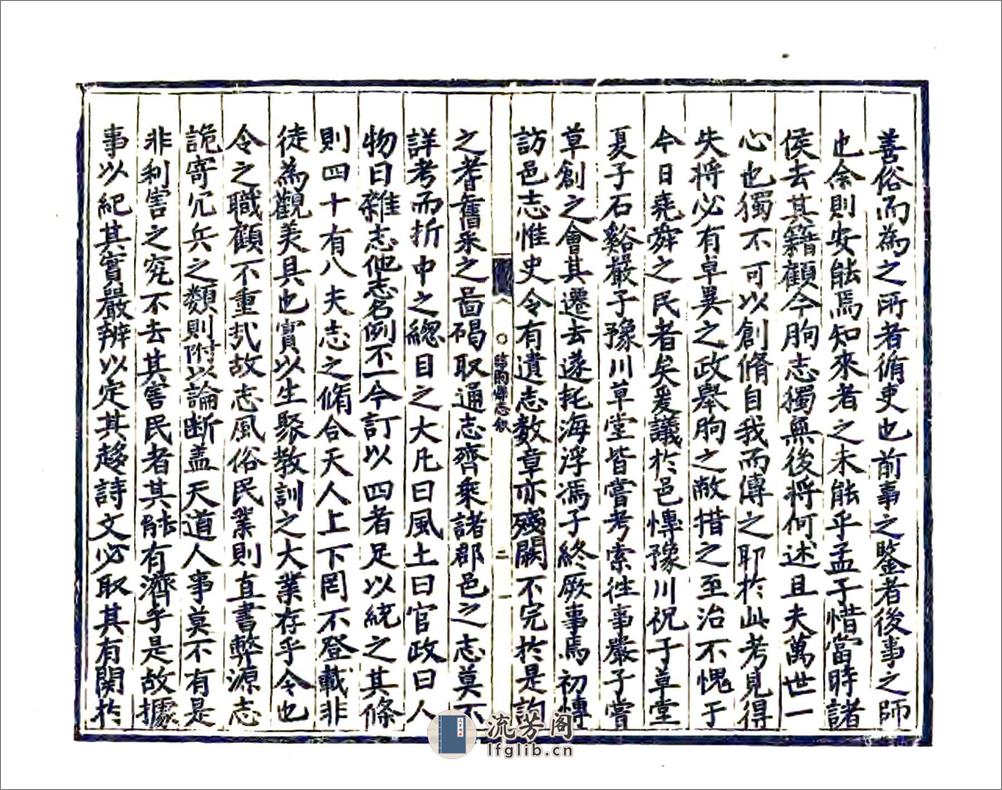 善俗而為之所者循吏也前事之鑒者後事之師
也余則安能焉知來者之未能乎孟子惜當時諸
侯去其籍顧今朐志獨無後將何述且夫萬世一
心也獨不可以創脩自我而傳之耶於此考見得
失將必有卓異之政舉朐之敝措之至治不愧于
今日堯舜之民者矣爰議於邑愽豫川祝子草堂
夏子石谿嚴子豫川草堂皆嘗考索徃事嚴子嘗
草創之會其遷去遂托海浮馮子終厥事焉初愽
訪邑志惟史令有遺志数章亦殘闕不完於是詢
臨朐縣志叙
二
之耆舊索之啚碣取通志齊乘諸郡邑之志莫不
詳考而折中之總目之大凡曰風土曰官政曰人
物曰雜志他志名例不一今訂以四者足以統之其條
則四十有八夫志之脩合天人上下罔不登載非
徒為觀美具也實以生聚教訓之大業存乎令也
令之職顧不重㢤故志風俗民業則直書弊源志
詭寄冗兵之類則附以論斷盖天道人事莫不有是
非利害之究不去其害民者其能有濟乎是故據
事以紀其實嚴辨以定其趍詩文必取其有關於
流芳阁
lfglib.cn